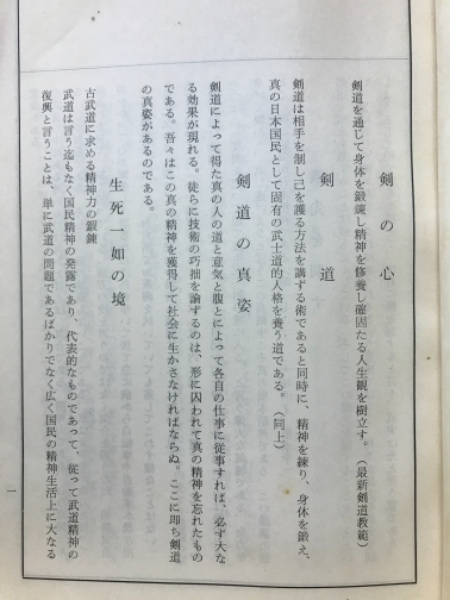 剣の心
剣道を通じて身体を鍛錬し精神を修養し確固たる人生観を樹立す。(最新剣道教範)
剣道
剣道は相手を制し己を護る方法を講ずる術であると同時に、精神を練り、身体を鍛え、
真の日本国民として固有の武士道的人格を養う道である。(同上)
剣道の真姿
剣道によって得た真の人の道と意気と腹とによって各自の仕事に従事すれば、必ず大な
る効果が現れる。徒らに技術の巧拙を論ずるのは、形に囚われて真の精神を忘れたもの
である。吾々はこの真の精神を獲得して社会に生かさなければならぬ。ここに即ち剣道
の真姿があるのである。
生死一如の境
古武道に求める精神力の鍛錬
武道は言う迄もなく国民精神の発露であり、代表的なものであって、従って武道精神の
復興と言うことは、単に武道の問題であるばかりでなく広く国民の精神生活上に大なる
一